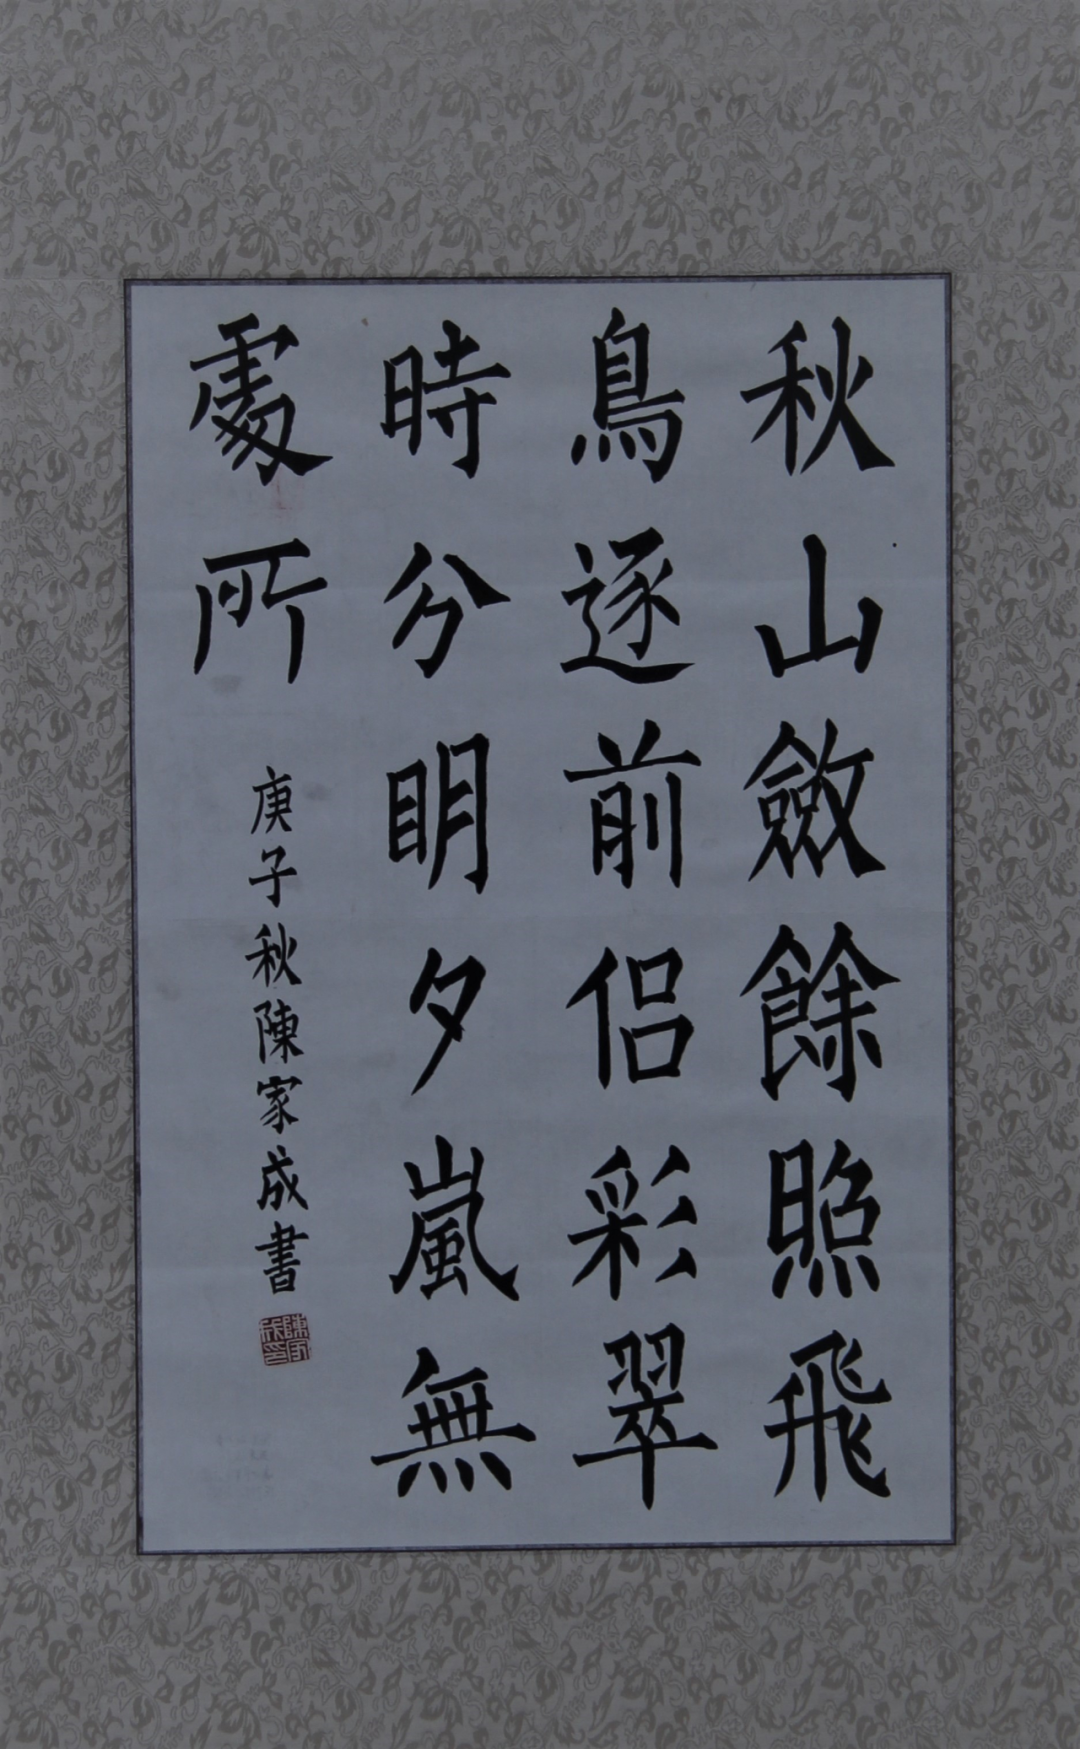 秋山斂餘照飛
鳥逐前侶彩翠
時分明夕嵐無
處所
庚子秋陳家成書